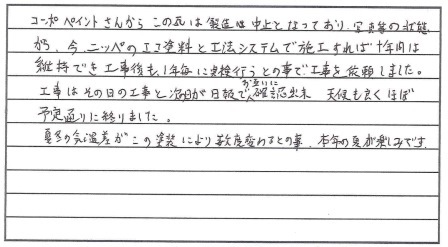 コーポペイントさんからこの瓦は製造は中止となっており、写真等の状態
から、今、ニッペのエコ塗料と工法システムで施工すれば十年間は
維持でき工事後も、1年毎に点検行うとの事で工事を依頼しました。
お互いに
工事はその日の工事と次回が日報で確認出来 天候も良くほぼ
予定通りに終りました。
真冬の気温差がこの塗装により数度変わるとの事、本年の夏が楽しみです。